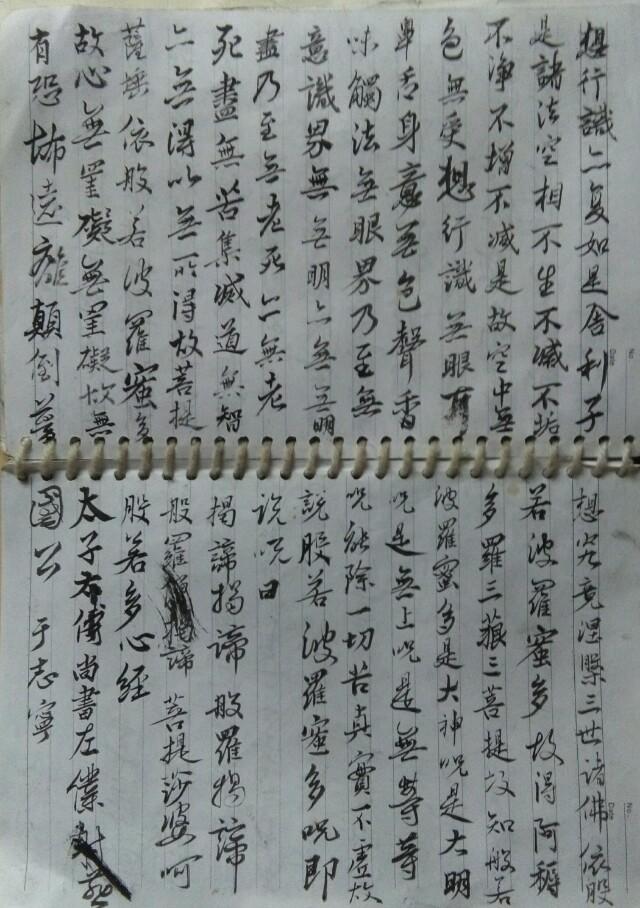 想行識亦复如是舍利子
是諸法空相不生不滅不垢
不净不增不减是故空中無
色無受想行識無眼耳
鼻舌身意無色聲香
味觸法無眼界乃至無
意識界無無明亦無無明
盡乃至無老死亦無老
死盡無苦集滅道無智
亦無得以無所得故菩提
薩埵依般若波羅蜜多
故心無罣礙無罣礙故無
有恐怖遠離顛倒夢
想究竟涅槃三世諸佛依般
若波羅蜜多故得阿耨
多羅三藐三菩提故知般若
波羅蜜多是大神咒是大明
咒是無上咒是無等等
咒能除一切苦真實不虛故
說般若波羅蜜多咒即
说咒曰
揭諦揭諦般羅揭諦
般羅揭諦菩提莎婆呵
般若多心經
太子太傅尚書左僕射燕
國公于志寧
No
Date
No
Date